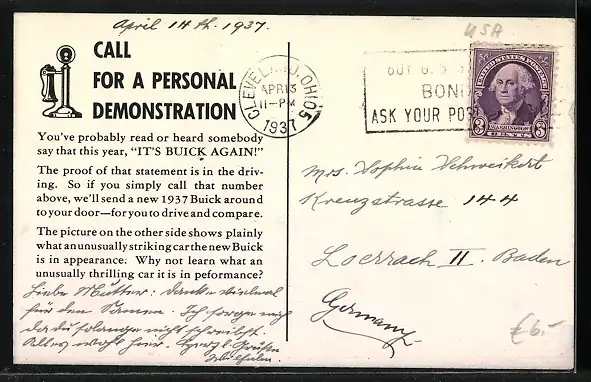 April 14th. 1937.
USA
CALL
FOR A PERSONAL
DEMONSTRATION
You've probably read or heard somebody
say that this year, "IT'S BUICK AGAIN!"
The proof of that statement is in the driv-
ing. So if you simply call that number
above, we'll send a new 1937 Buick around
to your door—for you to drive and compare.
The picture on the other side shows plainly
what an unusually striking car the new Buick
is in appearance. Why not learn what an
unusually thrilling car it is in peformance?
Liebe Mutter: danke vielmal
für den Samen. Ich sorge mich
da du solange nicht schreibst.
Alles wohl hier. Herzl. Grüße
Wilhelm.
CLEVELAND, OHIO 5
APR 13
11-PM
1937
BUY U. S.
BOND
ASK YOUR POS
UNITED STATES POSTAGE
WASHINGTON
3 CENTS 3
Mrs. Sophie Schweikert
Kreuzstrasse 144
Loerrach II. Baden
Germany
€6.-